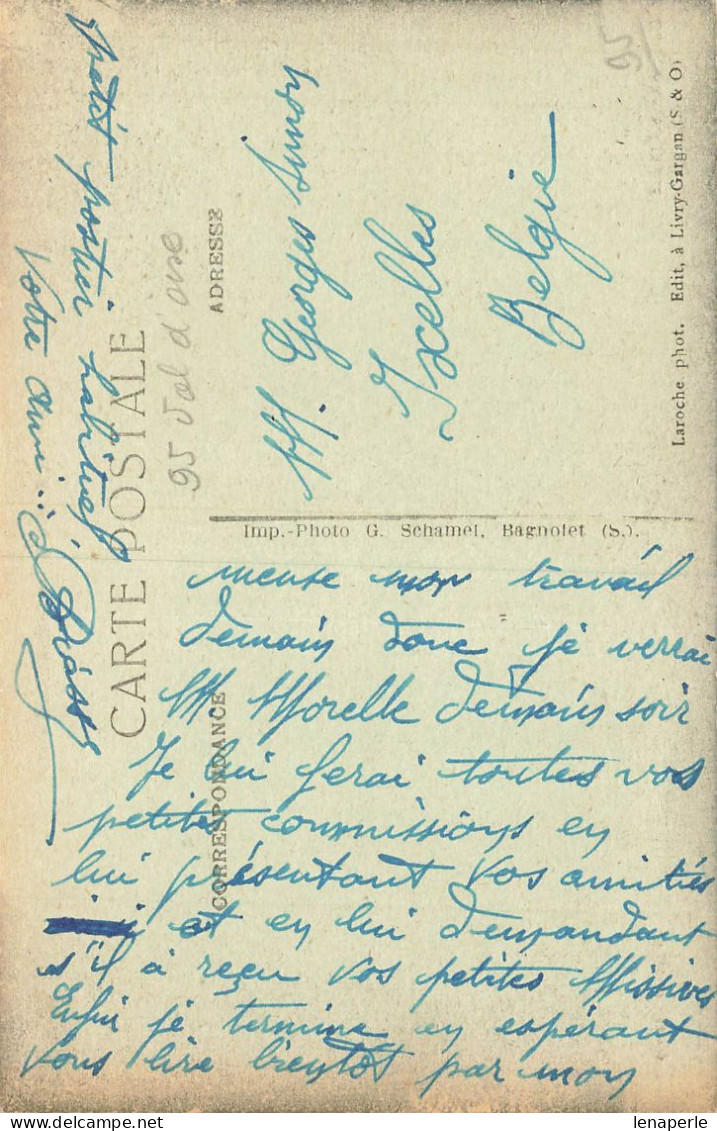 CARTE POSTALE
95 Val d'oise
ADRESSE
M. Georges Simon
Ixelles
Belgie
Laroche phot. Edit, à Livry-Gargan (S & O)
Imp.-Photo G. Schamel, Bagnolet (S.).
CORRESPONDANCE
mence mon travail
demain donc je verrai
M. Morelle demain soir
Je lui ferai toutes vos
petites commissions en
lui présentant vos amitiés
et en lui demandant
s'il à reçu vos petites Missives
Enfin je termine en espérant
vous lire bientôt par mon
petit postier habituel
Votre ami :
95/
lenaperle